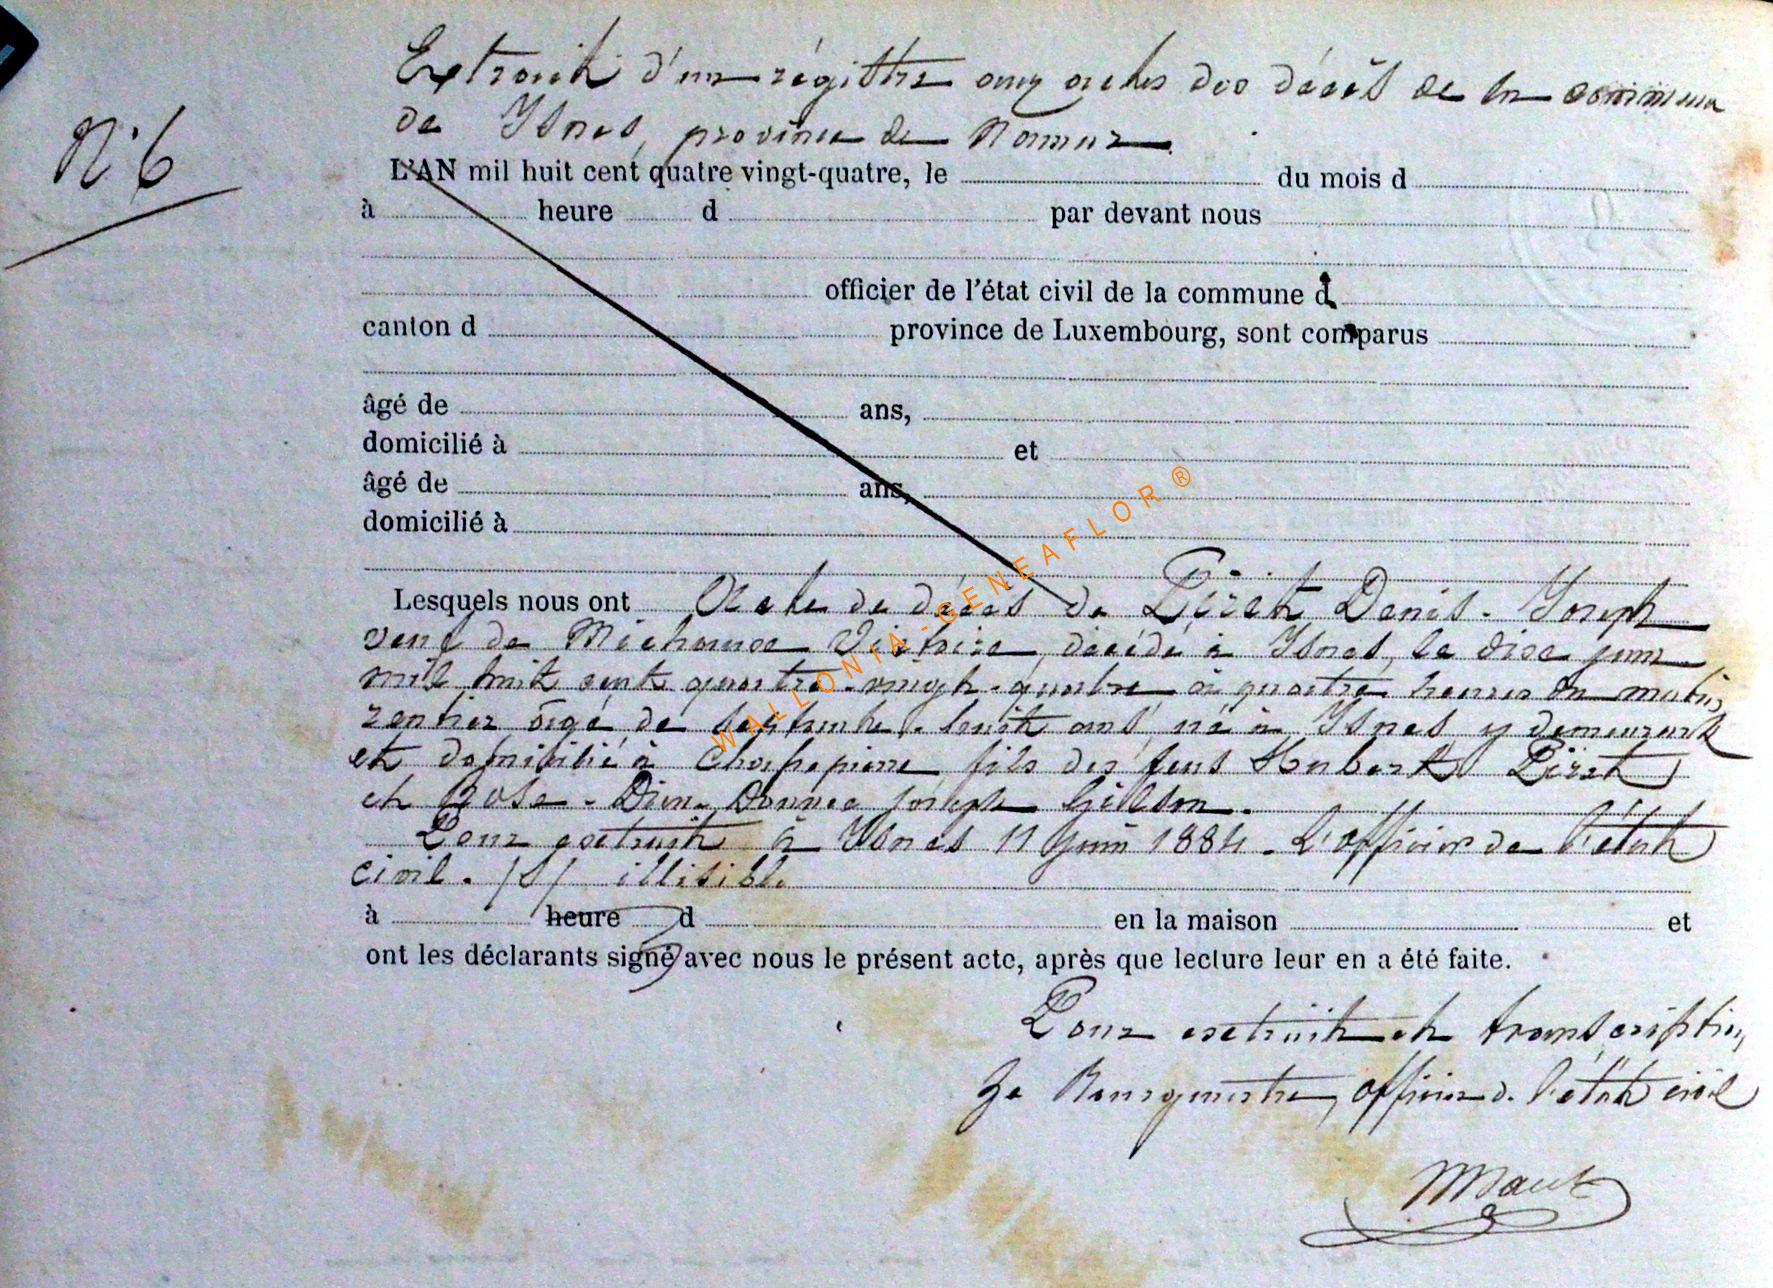 Extrait d'un régistre aux actes des décès de la commune
N° 6
de Isnes, province de Namur.
L'AN mil huit cent quatre vingt-quatre, le du mois d
à heure d par devant nous
officier de l'état civil de la commune d
canton d province de Luxembourg, sont comparus
âgé de ans,
domicilié à et
âgé de ans,
domicilié à
WALLONIA-GENEAFLOR ®
Lesquels nous ont Acte de décès de Piret Denis-Joseph
veuf de décédé à Isnes, le dix juin
mil huit cent quatre-vingt-quatre à quatre heures du matin,
rentier âgé de septante-huit ans, né à Isnes y demeurant
et domicilié à fils des feus Hubert Piret
et Rose-Dieu-Donnée joseph Gilson.
Pour extrait à Isnes 11 juin 1884. L'officier de l'état
civil. /s/ illisible
à heure d en la maison et
ont les déclarants signé avec nous le présent acte, après que lecture leur en a été faite.
Pour extrait et transcription,
Le Bourgmestre, officier d. l'état civil